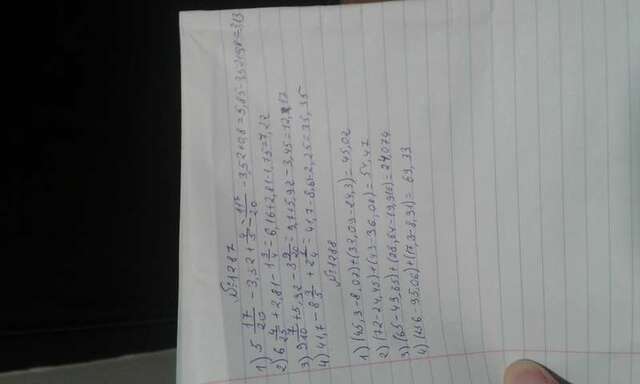 №1287
1) 5 17/20 - 3,52 + 4/5 = 117/20 - 3,52 + 0,8 = 5,85 - 3,52 + 0,8 = 3,13
2) 6 4/25 + 2,81 - 1 3/4 = 6,16 + 2,81 - 1,75 = 7,22
3) 9 7/10 + 5,92 - 3 9/20 = 9,7 + 5,92 - 3,45 = 12,17
4) 41,7 - 8 3/5 + 2 1/4 = 41,7 - 8,6 + 2,25 = 35,35
№1288
1) (45,3-8,07)+(32,09-24,3)= 45,02
2) (72-24,45)+(43-36,08)= 54,47
3) (65-49,65)+(28,64-19,916)= 24,074
4) (156-95,06)+(17,3-8,91)= 69,33